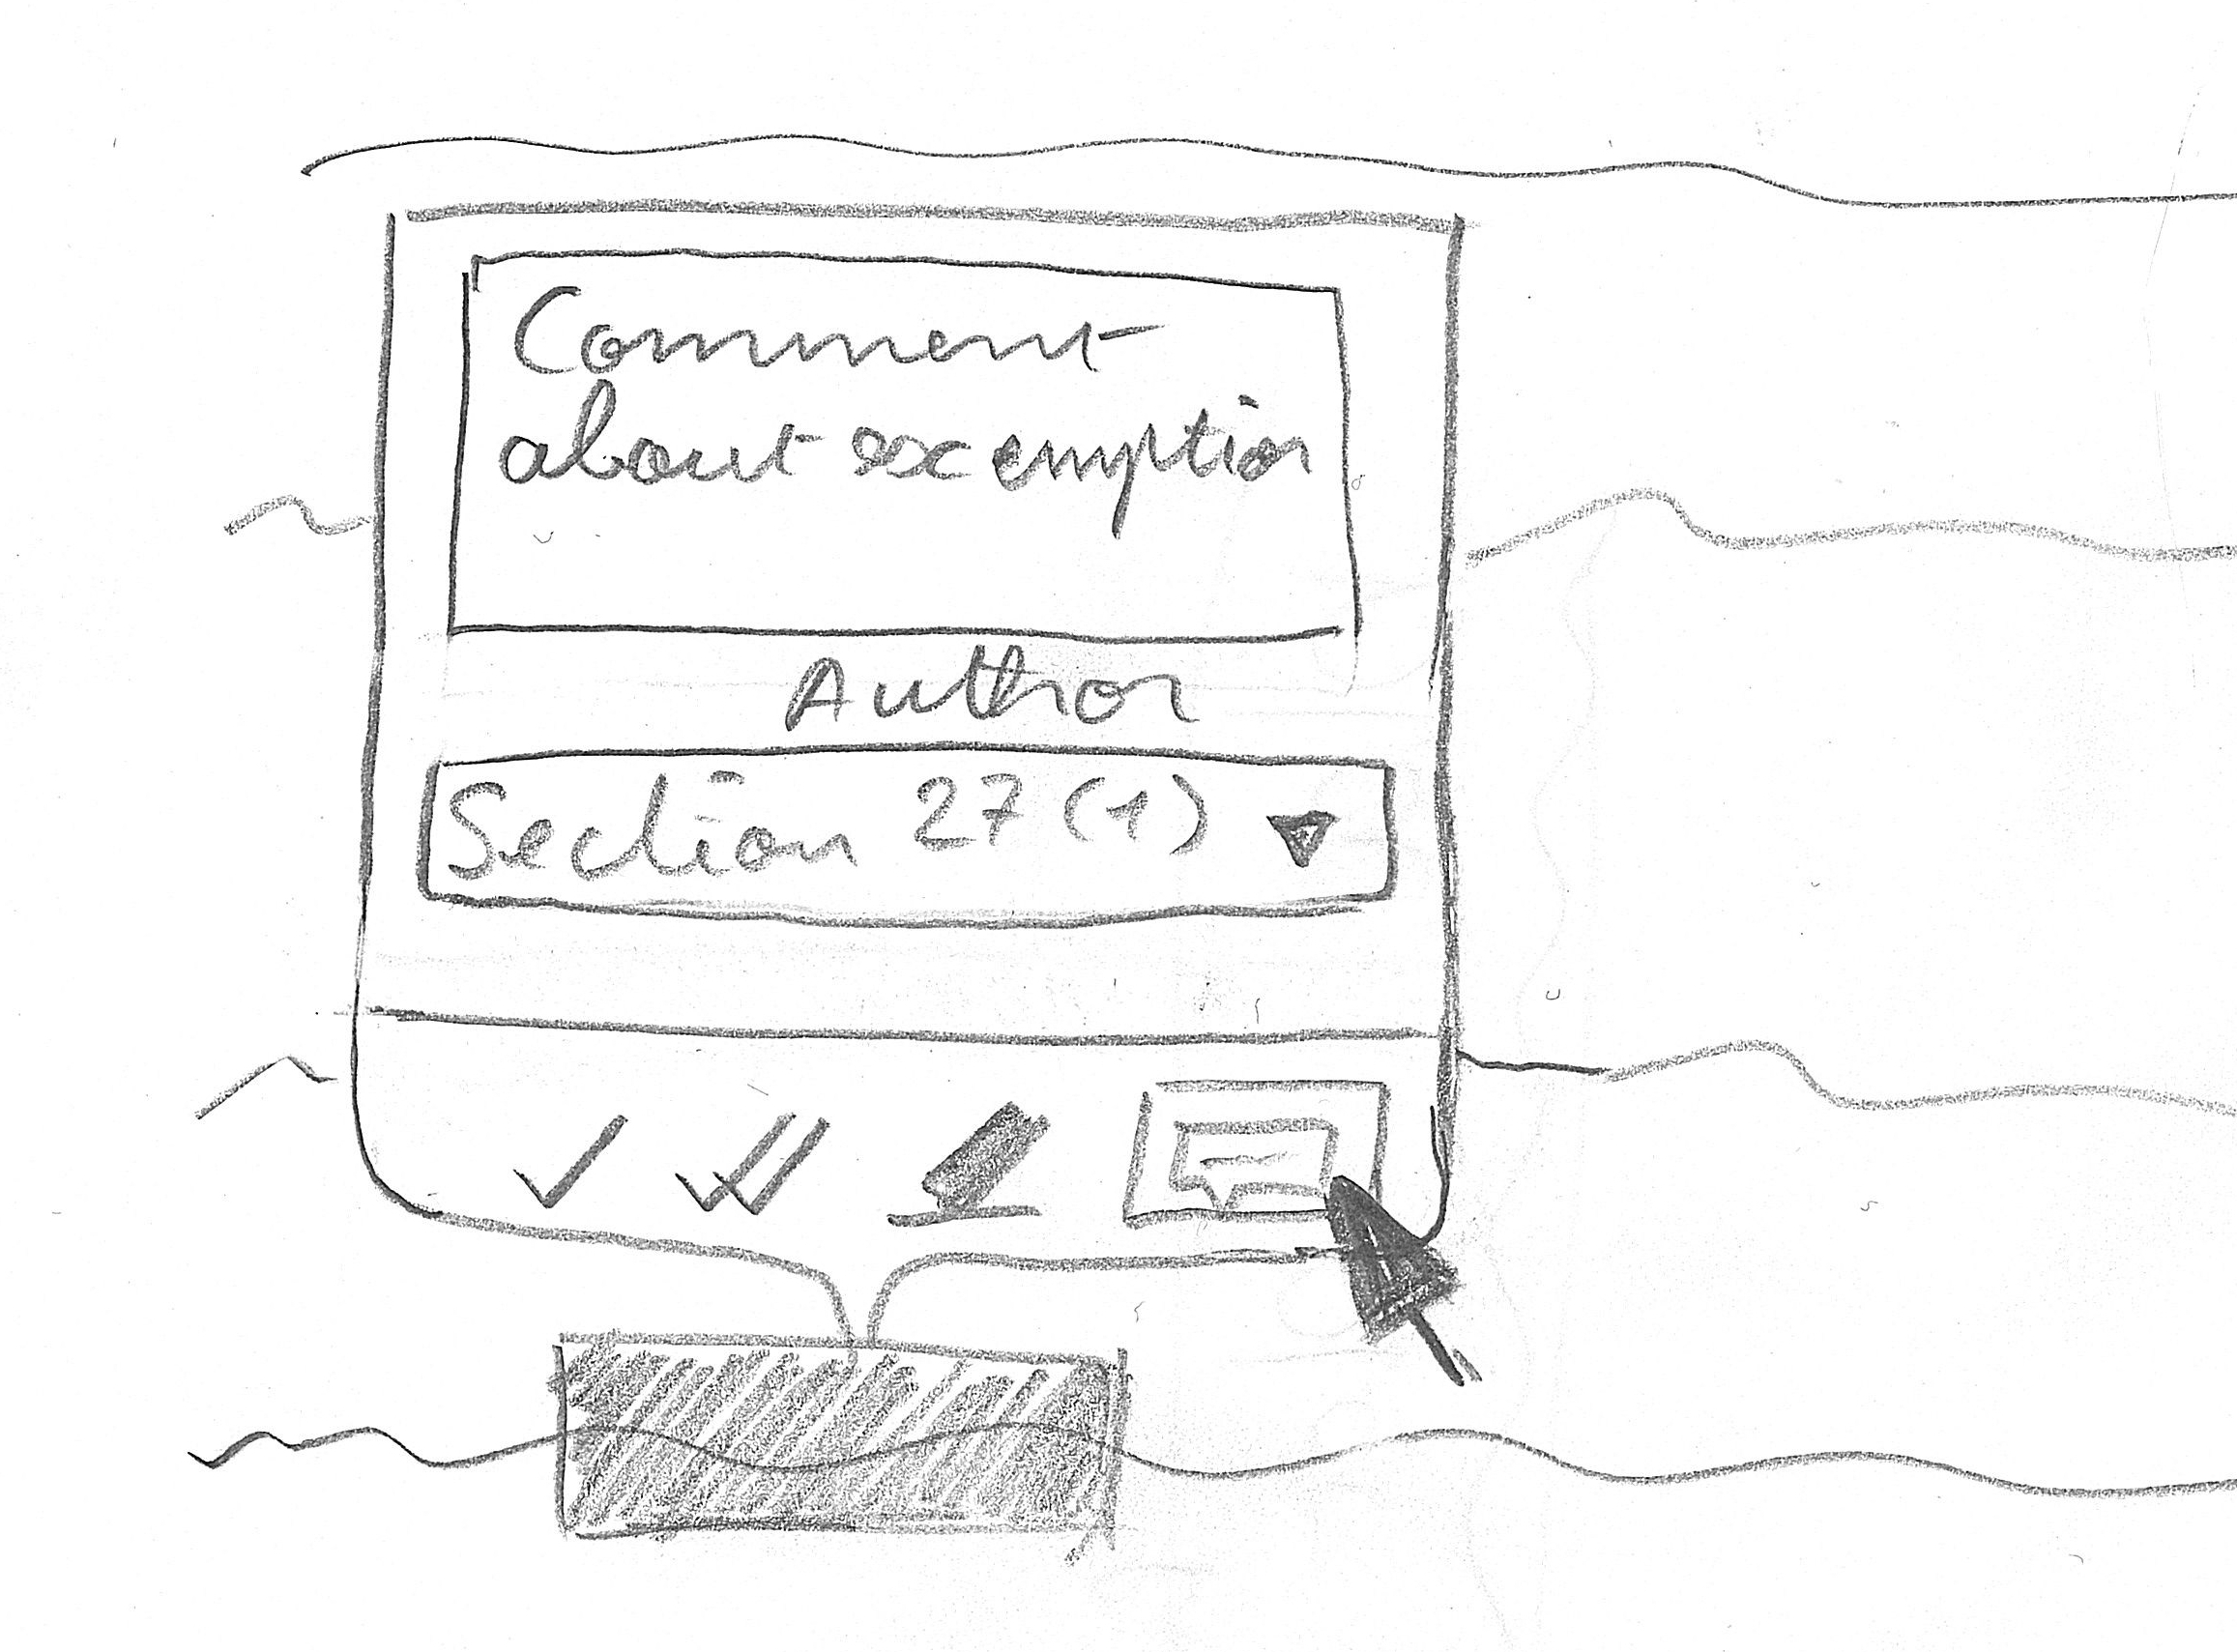 Comment
about exemption
Author
Section 27 (1)